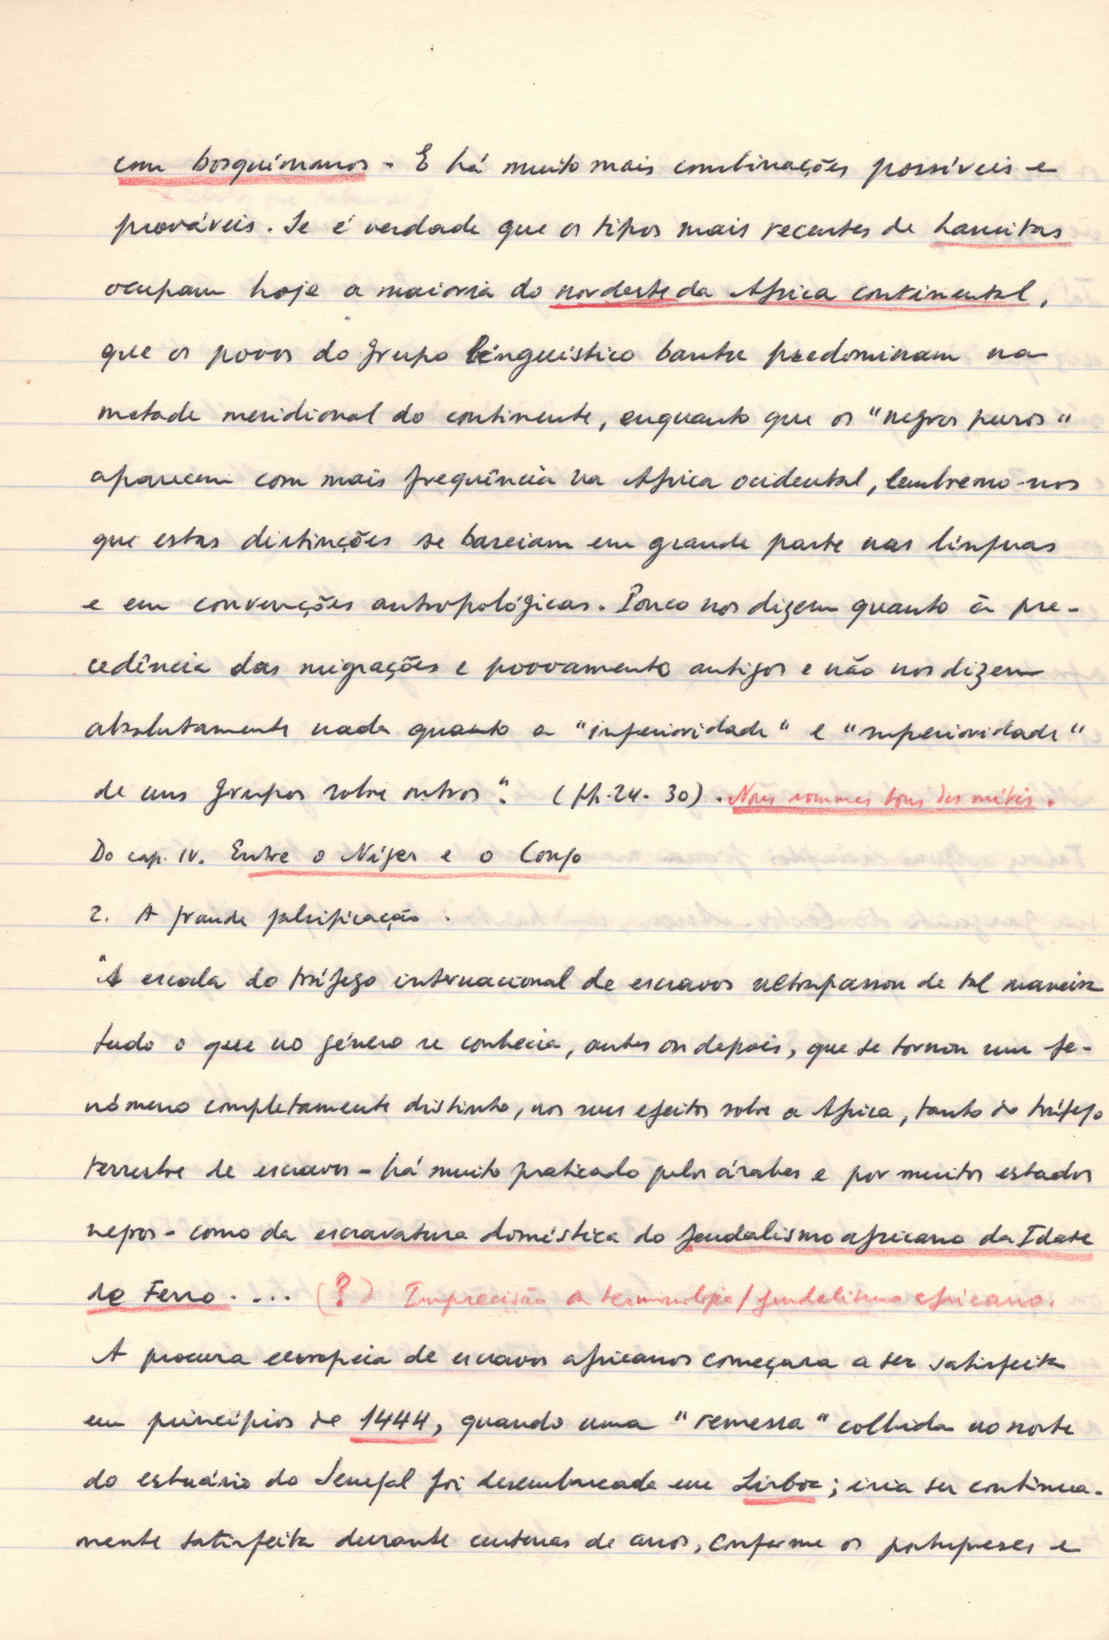 com bosquímanos - E há muito mais combinações possíveis e
prováveis. Se é verdade que os tipos mais recentes de hamitas
ocupam hoje a maioria do nordeste da Africa continental,
que os povos do grupo linguístico bantu predominam na
metade meridional do continente, enquanto que os "negros puros"
aparecem com mais frequência na Africa ocidental, lembremo-nos
que estas distinções se baseiam em grande parte nas línguas
e em convenções antropológicas. Pouco nos dizem quanto à pre-
cedência das migrações e povoamento antigos e não nos dizem
absolutamente nada quanto a "inferioridade" e "superioridade"
de uns grupos sobre outros". (pp. 24-30). Nous sommes tous des métis.
Do cap. IV. Entre o Níger e o Congo
2. A grande falsificação.
"A escala do tráfego internacional de escravos ultrapassou de tal maneira
tudo o que no género se conhecia, antes ou depois, que se tornou um fe-
nómeno completamente distinto, nos seus efeitos sobre a Africa, tanto do tráfego
terrestre de escravos - há muito praticado pelos árabes e por muitos estados
negros - como da escravatura doméstica do feudalismo africano da Idade
do Ferro.... (?) Imprecisão da terminologia/feudalismo africano.
A procura europeia de escravos africanos começara a ser satisfeita
em princípios de 1444, quando uma "remessa" colhida no norte
do estuário do Senegal foi desembarcada em Lisboa; iria ser contínua-
mente satisfeita durante centenas de anos, conforme os portugueses e